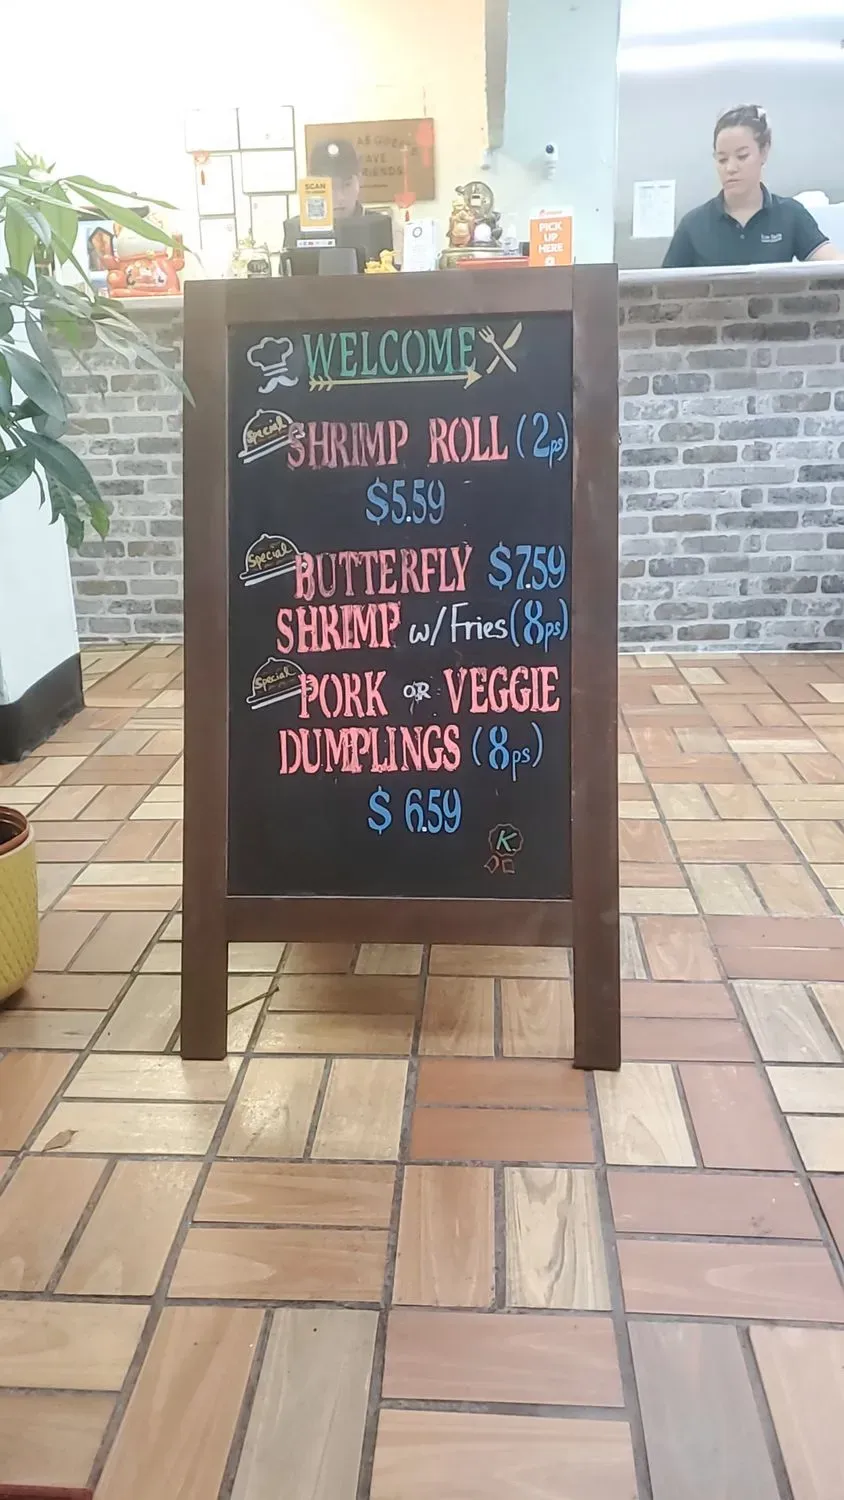 SCAN
PICK
UP
HERE
WELCOME
Special
SHRIMP ROLL (2ps)
$5.59
Special
BUTTERFLY $7.59
SHRIMP w/Fries (8ps)
Special
PORK OR VEGGIE
DUMPLINGS (8ps)
$6.59
K